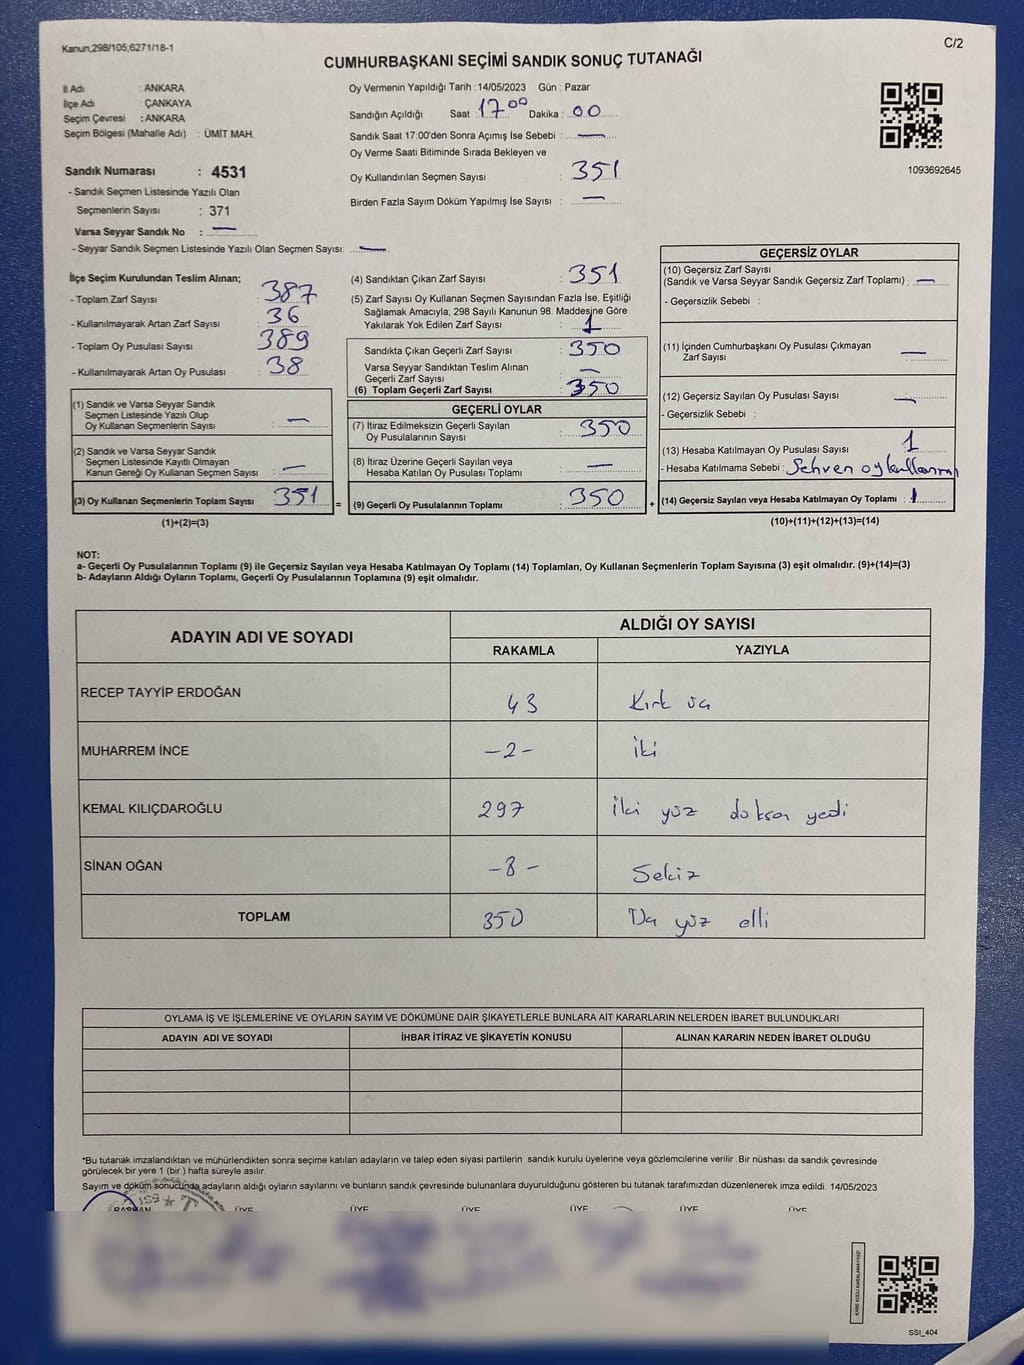 Kanun,298/105,6271/18-1
C/2
CUMHURBAŞKANI SEÇİMİ SANDIK SONUÇ TUTANAĞI
İl Adı : ANKARA
İlçe Adı : ÇANKAYA
Seçim Çevresi : ANKARA
Seçim Bölgesi (Mahalle Adı) : ÜMİT MAH.
Sandık Numarası : 4531
- Sandık Seçmen Listesinde Yazılı Olan
Seçmenlerin Sayısı : 371
Varsa Seyyar Sandık No : —
- Seyyar Sandık Seçmen Listesinde Yazılı Olan Seçmen Sayısı: —
Oy Vermenin Yapıldığı Tarih :14/05/2023 Gün : Pazar
Sandığın Açıldığı Saat : 17 00 Dakika : 00
Sandık Saat 17:00'den Sonra Açımış İse Sebebi : —
Oy Verme Saati Bitiminde Sırada Bekleyen ve
Oy Kullandırılan Seçmen Sayısı : 351
Birden Fazla Sayım Döküm Yapılmış İse Sayısı : —
1093692645
İlçe Seçim Kurulundan Teslim Alınan;
- Toplam Zarf Sayısı : 387
- Kullanılmayarak Artan Zarf Sayısı : 36
- Toplam Oy Pusulası Sayısı : 389
- Kullanılmayarak Artan Oy Pusulası : 38
(1) Sandık ve Varsa Seyyar Sandık
Seçmen Listesinde Yazılı Olup
Oy Kullanan Seçmenlerin Sayısı : —
(2) Sandık ve Varsa Seyyar Sandık
Seçmen Listesinde Kayıtlı Olmayan
Kanun Gereği Oy Kullanan Seçmen Sayısı : —
(3) Oy Kullanan Seçmenlerin Toplam Sayısı : 351 =
(1)+(2)=(3)
(4) Sandıktan Çıkan Zarf Sayısı : 351
(5) Zarf Sayısı Oy Kullanan Seçmen Sayısından Fazla İse, Eşitliği
Sağlamak Amacıyla; 298 Sayılı Kanunun 98. Maddesine Göre
Yakılarak Yok Edilen Zarf Sayısı : 1
Sandıkta Çıkan Geçerli Zarf Sayısı : 350
Varsa Seyyar Sandıktan Teslim Alınan
Geçerli Zarf Sayısı : —
(6) Toplam Geçerli Zarf Sayısı : 350
GEÇERLİ OYLAR
(7) İtiraz Edilmeksizin Geçerli Sayılan
Oy Pusulalarının Sayısı : 350
(8) İtiraz Üzerine Geçerli Sayılan veya
Hesaba Katılan Oy Pusulası Toplamı : —
(9) Geçerli Oy Pusulalarının Toplamı : 350 +
GEÇERSİZ OYLAR
(10) Geçersiz Zarf Sayısı
(Sandık ve Varsa Seyyar Sandık Geçersiz Zarf Toplamı) : —
- Geçersizlik Sebebi :
(11) İçinden Cumhurbaşkanı Oy Pusulası Çıkmayan
Zarf Sayısı : —
(12) Geçersiz Sayılan Oy Pusulası Sayısı : —
- Geçersizlik Sebebi :
(13) Hesaba Katılmayan Oy Pusulası Sayısı : 1
- Hesaba Katılmama Sebebi : Sehven oy kullanma
(14) Geçersiz Sayılan veya Hesaba Katılmayan Oy Toplamı : 1
(10)+(11)+(12)+(13)=(14)
NOT:
a- Geçerli Oy Pusulalarının Toplamı (9) ile Geçersiz Sayılan veya Hesaba Katılmayan Oy Toplamı (14) Toplamları, Oy Kullanan Seçmenlerin Toplam Sayısına (3) eşit olmalıdır. (9)+(14)=(3)
b- Adayların Aldığı Oyların Toplamı, Geçerli Oy Pusulalarının Toplamına (9) eşit olmalıdır.
ADAYIN ADI VE SOYADI
ALDIĞI OY SAYISI
RAKAMLA YAZIYLA
RECEP TAYYİP ERDOĞAN 43 Kırk üç
MUHARREM İNCE -2- iki
KEMAL KILIÇDAROĞLU 297 iki yüz doksan yedi
SİNAN OĞAN -8- Sekiz
TOPLAM 350 Üç yüz elli
OYLAMA İŞ VE İŞLEMLERİNE VE OYLARIN SAYIM VE DÖKÜMÜNE DAİR ŞİKAYETLERLE BUNLARA AİT KARARLARIN NELERDEN İBARET BULUNDUKLARI
ADAYIN ADI VE SOYADI İHBAR İTİRAZ VE ŞİKAYETİN KONUSU ALINAN KARARIN NEDEN İBARET OLDUĞU
*Bu tutanak imzalandıktan ve mühürlendikten sonra seçime katılan adayların ve talep eden siyasi partilerin sandık kurulu üyelerine veya gözlemcilerine verilir .Bir nüshası da sandık çevresinde
görülecek bir yere 1 (bir ) hafta süreyle asılır.
Sayım ve döküm sonucunda adayların aldığı oyların sayılarını ve bunların sandık çevresinde bulunanlara duyurulduğunu gösteren bu tutanak tarafımızdan düzenlenerek imza edildi. 14/05/2023
BAŞKAN ÜYE ÜYE ÜYE ÜYE ÜYE ÜYE
KARE KODU KARALAMAYINIZ!
SSI_404